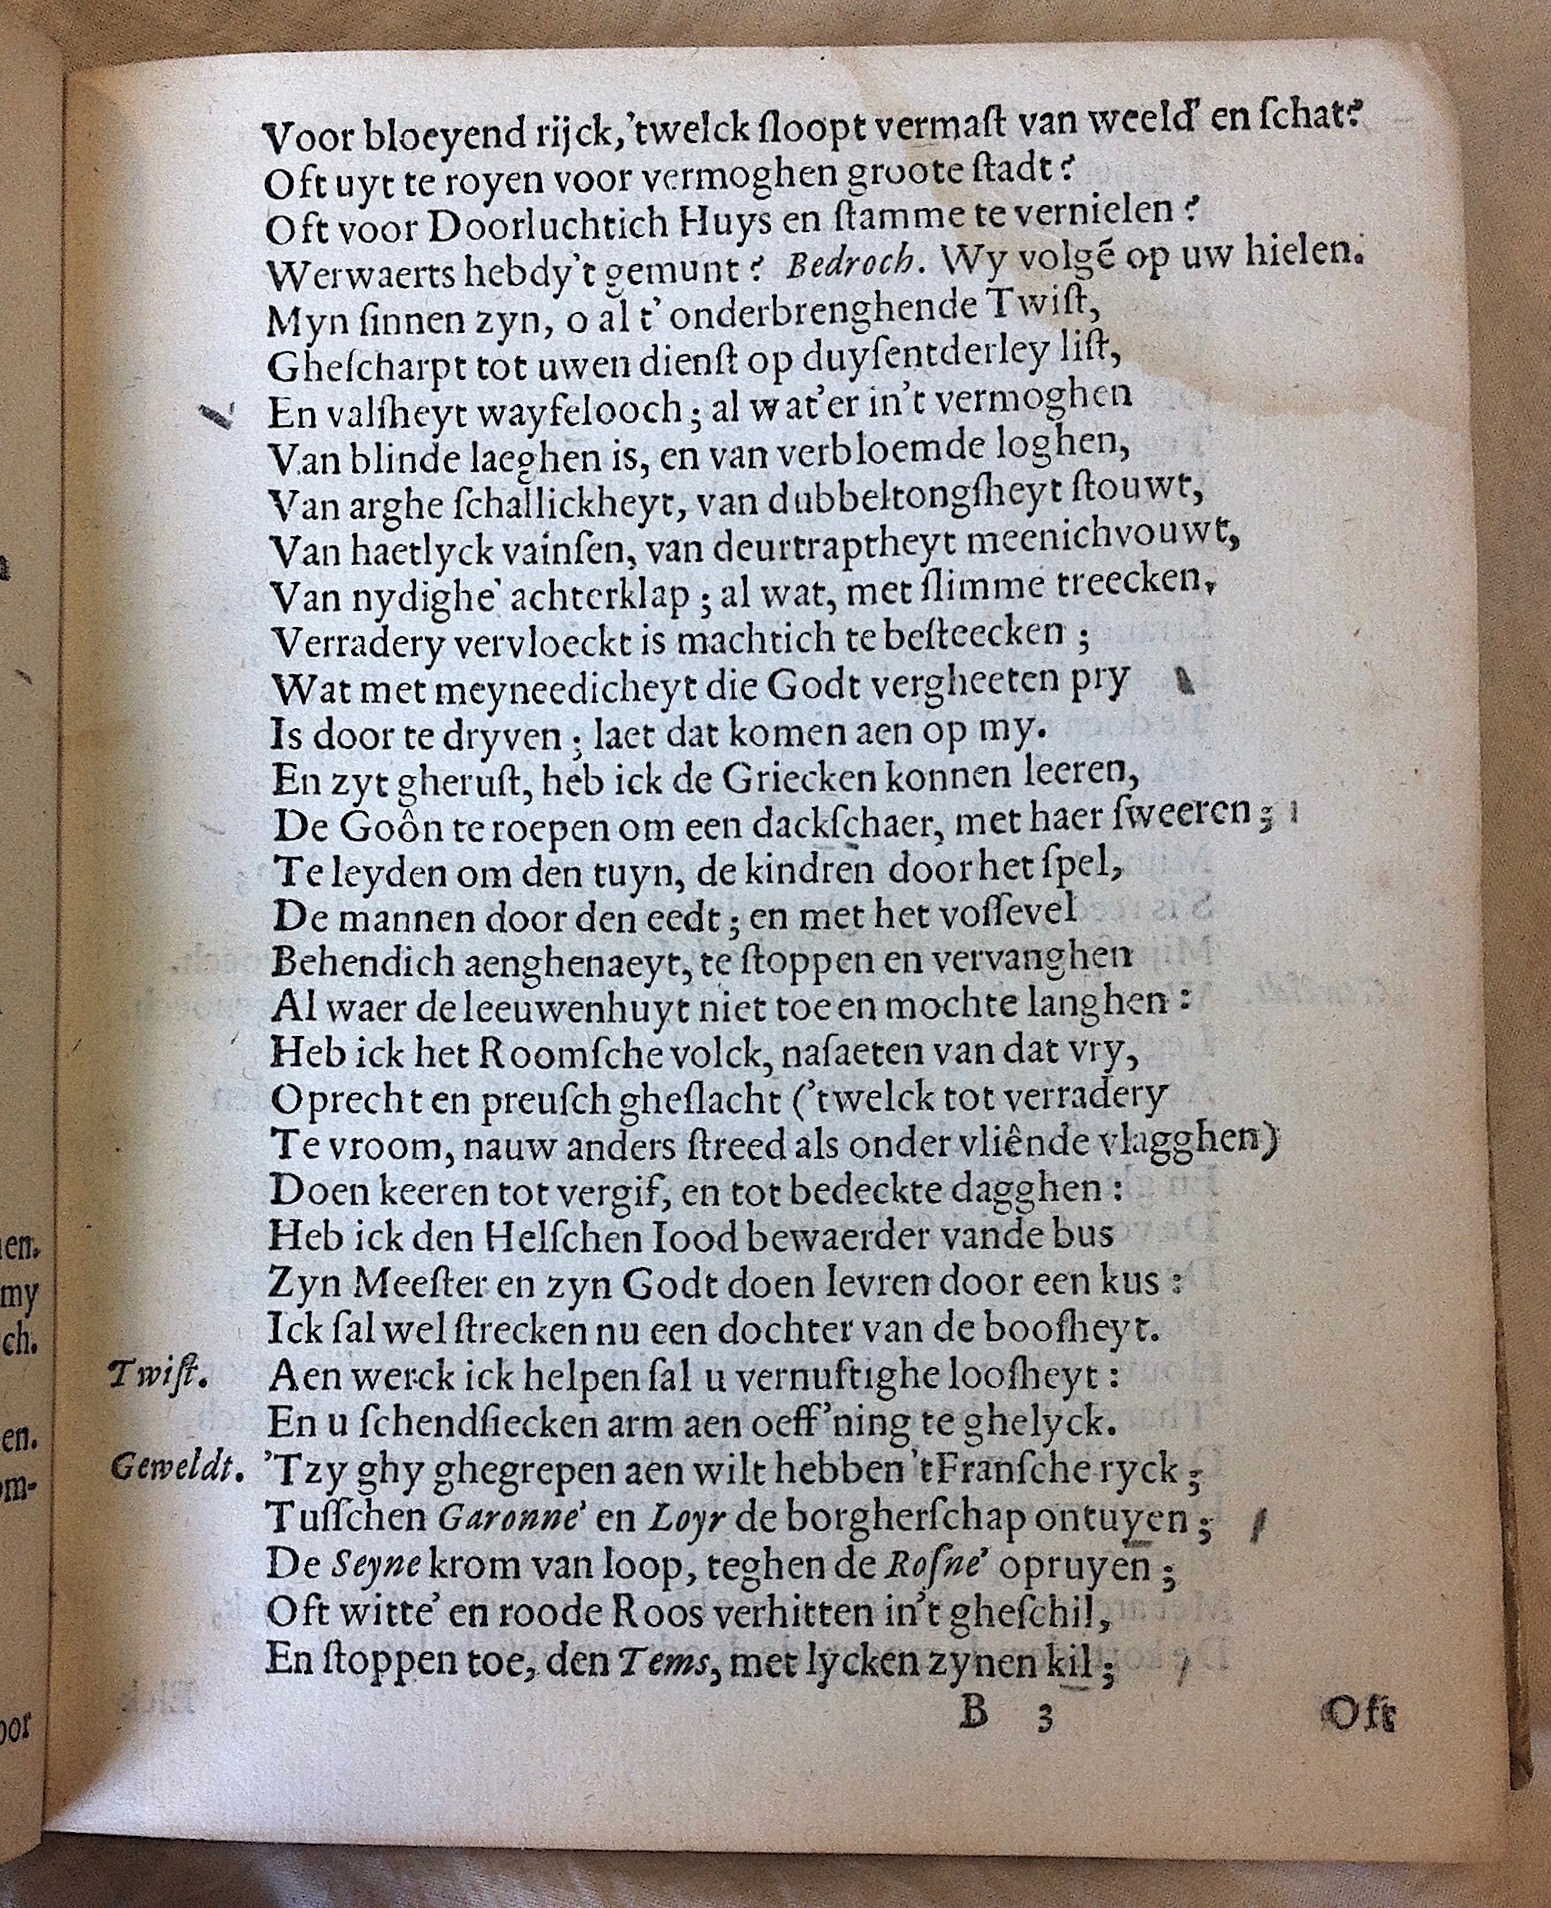 Voor bloeyend rijck,'twelck ſloopt vermaſt van weeld' en ſchat?
Oft uyt te royen voor vermoghen groote ſtadt?
Oft voor Doorluchtich Huys en ſtamme te vernielen?
Werwaerts hebdy't gemunt? Bedroch. Wy volgē op uw hielen.
Myn ſinnen zyn, o al t' onderbrenghende Twiſt,
Gheſcharpt tot uwen dienſt op duyſentderley liſt,
En valſheyt wayfelooch; al wat'er in't vermoghen
Van blinde laeghen is, en van verbloemde loghen,
Van arghe ſchallickheyt, van dubbeltongſheyt ſtouwt,
Van haetlyck vainſen, van deurtraptheyt meenichvouwt,
Van nydighe' achterklap; al wat, met ſlimme treecken,
Verradery vervloeckt is machtich te beſteecken;
Wat met meyneedicheyt die Godt vergheeten pry
Is door te dryven; laet dat komen aen op my.
En zyt gheruſt, heb ick de Griecken konnen leeren,
De Goôn te roepen om een dackſchaer, met haer ſweeren;
Te leyden om den tuyn, de kindren door het ſpel,
De mannen door den eedt; en met het voſſevel
Behendich aenghenaeyt, te ſtoppen en vervanghen
Al waer de leeuwenhuyt niet toe en mochte langhen:
Heb ick het Roomſche volck, naſaeten van dat vry,
Oprecht en preuſch gheſlacht ('twelck tot verradery
Te vroom, nauw anders ſtreed als onder vliênde vlagghen)
Doen keeren tot vergif, en tot bedeckte dagghen:
Heb ick den Helſchen Iood bewaerder vande bus
Zyn Meeſter en zyn Godt doen levren door een kus:
Ick ſal wel ſtrecken nu een dochter van de booſheyt.
Twiſt. Aen werck ick helpen ſal u vernuftighe looſheyt:
En u ſchendſiecken arm aen oeff'ning te ghelyck.
Geweldt. 'Tzy ghy ghegrepen aen wilt hebben 't Franſche ryck;
Tuſſchen Garonne' en Loyr de borgherſchap ontuyen;
De Seyne krom van loop, teghen de Roſne' opruyen;
Oft witte' en roode Roos verhitten in't gheſchil,
En ſtoppen toe, den Tems, met lycken zynen kil;
B 3 Oft
en.
my
ch.
en.
om-
oor